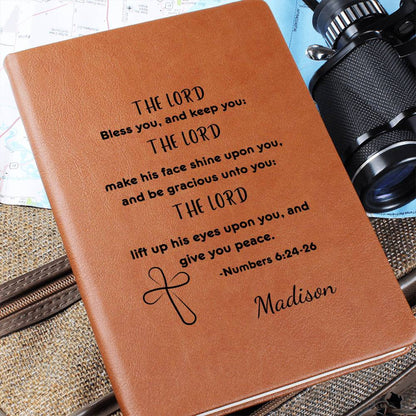 THE LORD
Bless you, and keep you:
THE LORD
make his face shine upon you,
and be gracious unto you:
THE LORD
lift up his eyes upon you, and
give you peace.
-Numbers 6:24-26
Madison